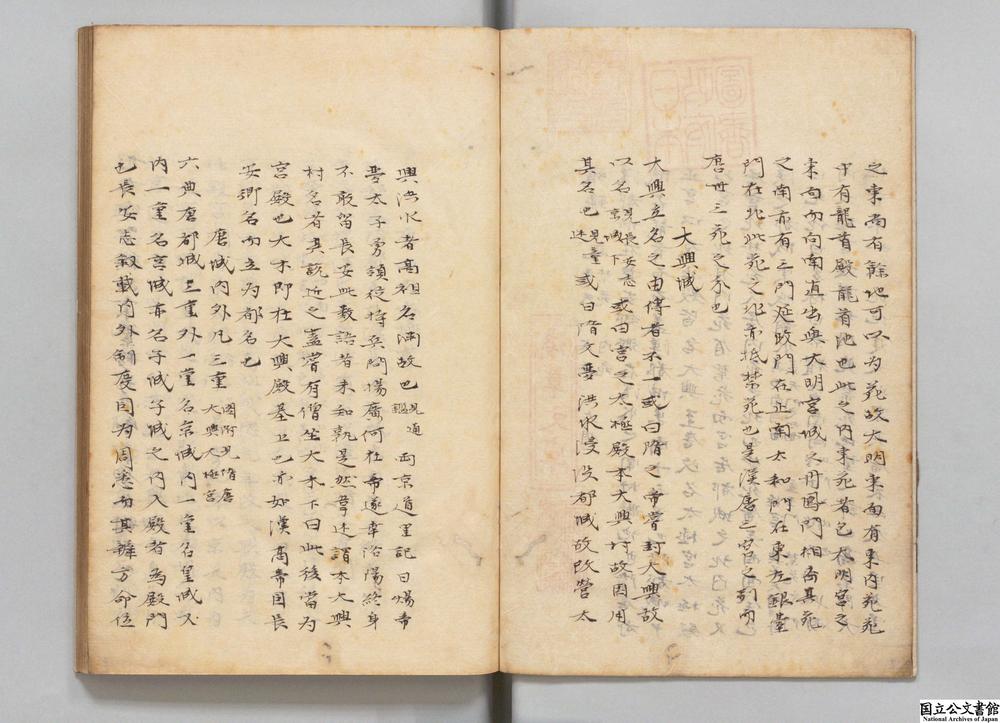 之東尚有餘地可以為苑故大明東面有東内苑苑
中有龍首殿龍首池也此之内東苑者包大明宮之
東面而向南直出與大明宮城之丹鳳門相齊其苑
之南亦有三門延政門在正南太和門在東左銀臺
門在北此苑之北亦抵禁苑也是漢唐三宮之別而
唐世三苑之分也
大興城
大興立名之由傳者不一或曰隋之帝嘗封大興故
以名京城見長安志下或曰宮之太極殿本大興村故因用
其名也見呂圖述或曰隋文夢洪水浸沒都城故改營太
興洪水者高祖名淵故也見通鑑兩京道里記曰煬帝
為太子勇領從將兵問楊廣何在帝遂幸洛陽終身
不敢留長安此數語者未知孰是然韋述謂本大興
村名者其說近之蓋嘗有僧坐大木下曰此後當為
宮殿也大木即在大興殿基上也亦如漢高帝因長
安鄉名而立為都名也
唐城内外凡三重圖附見隋唐大興太極宮
六典唐都城三重外一重名京城内一重名皇城又
内一重名宮城亦名子城子城之内入殿者為殿門
也長安志敘載内外制度固為周悉而其辨方命位
国立公文書館
National Archives of Japan